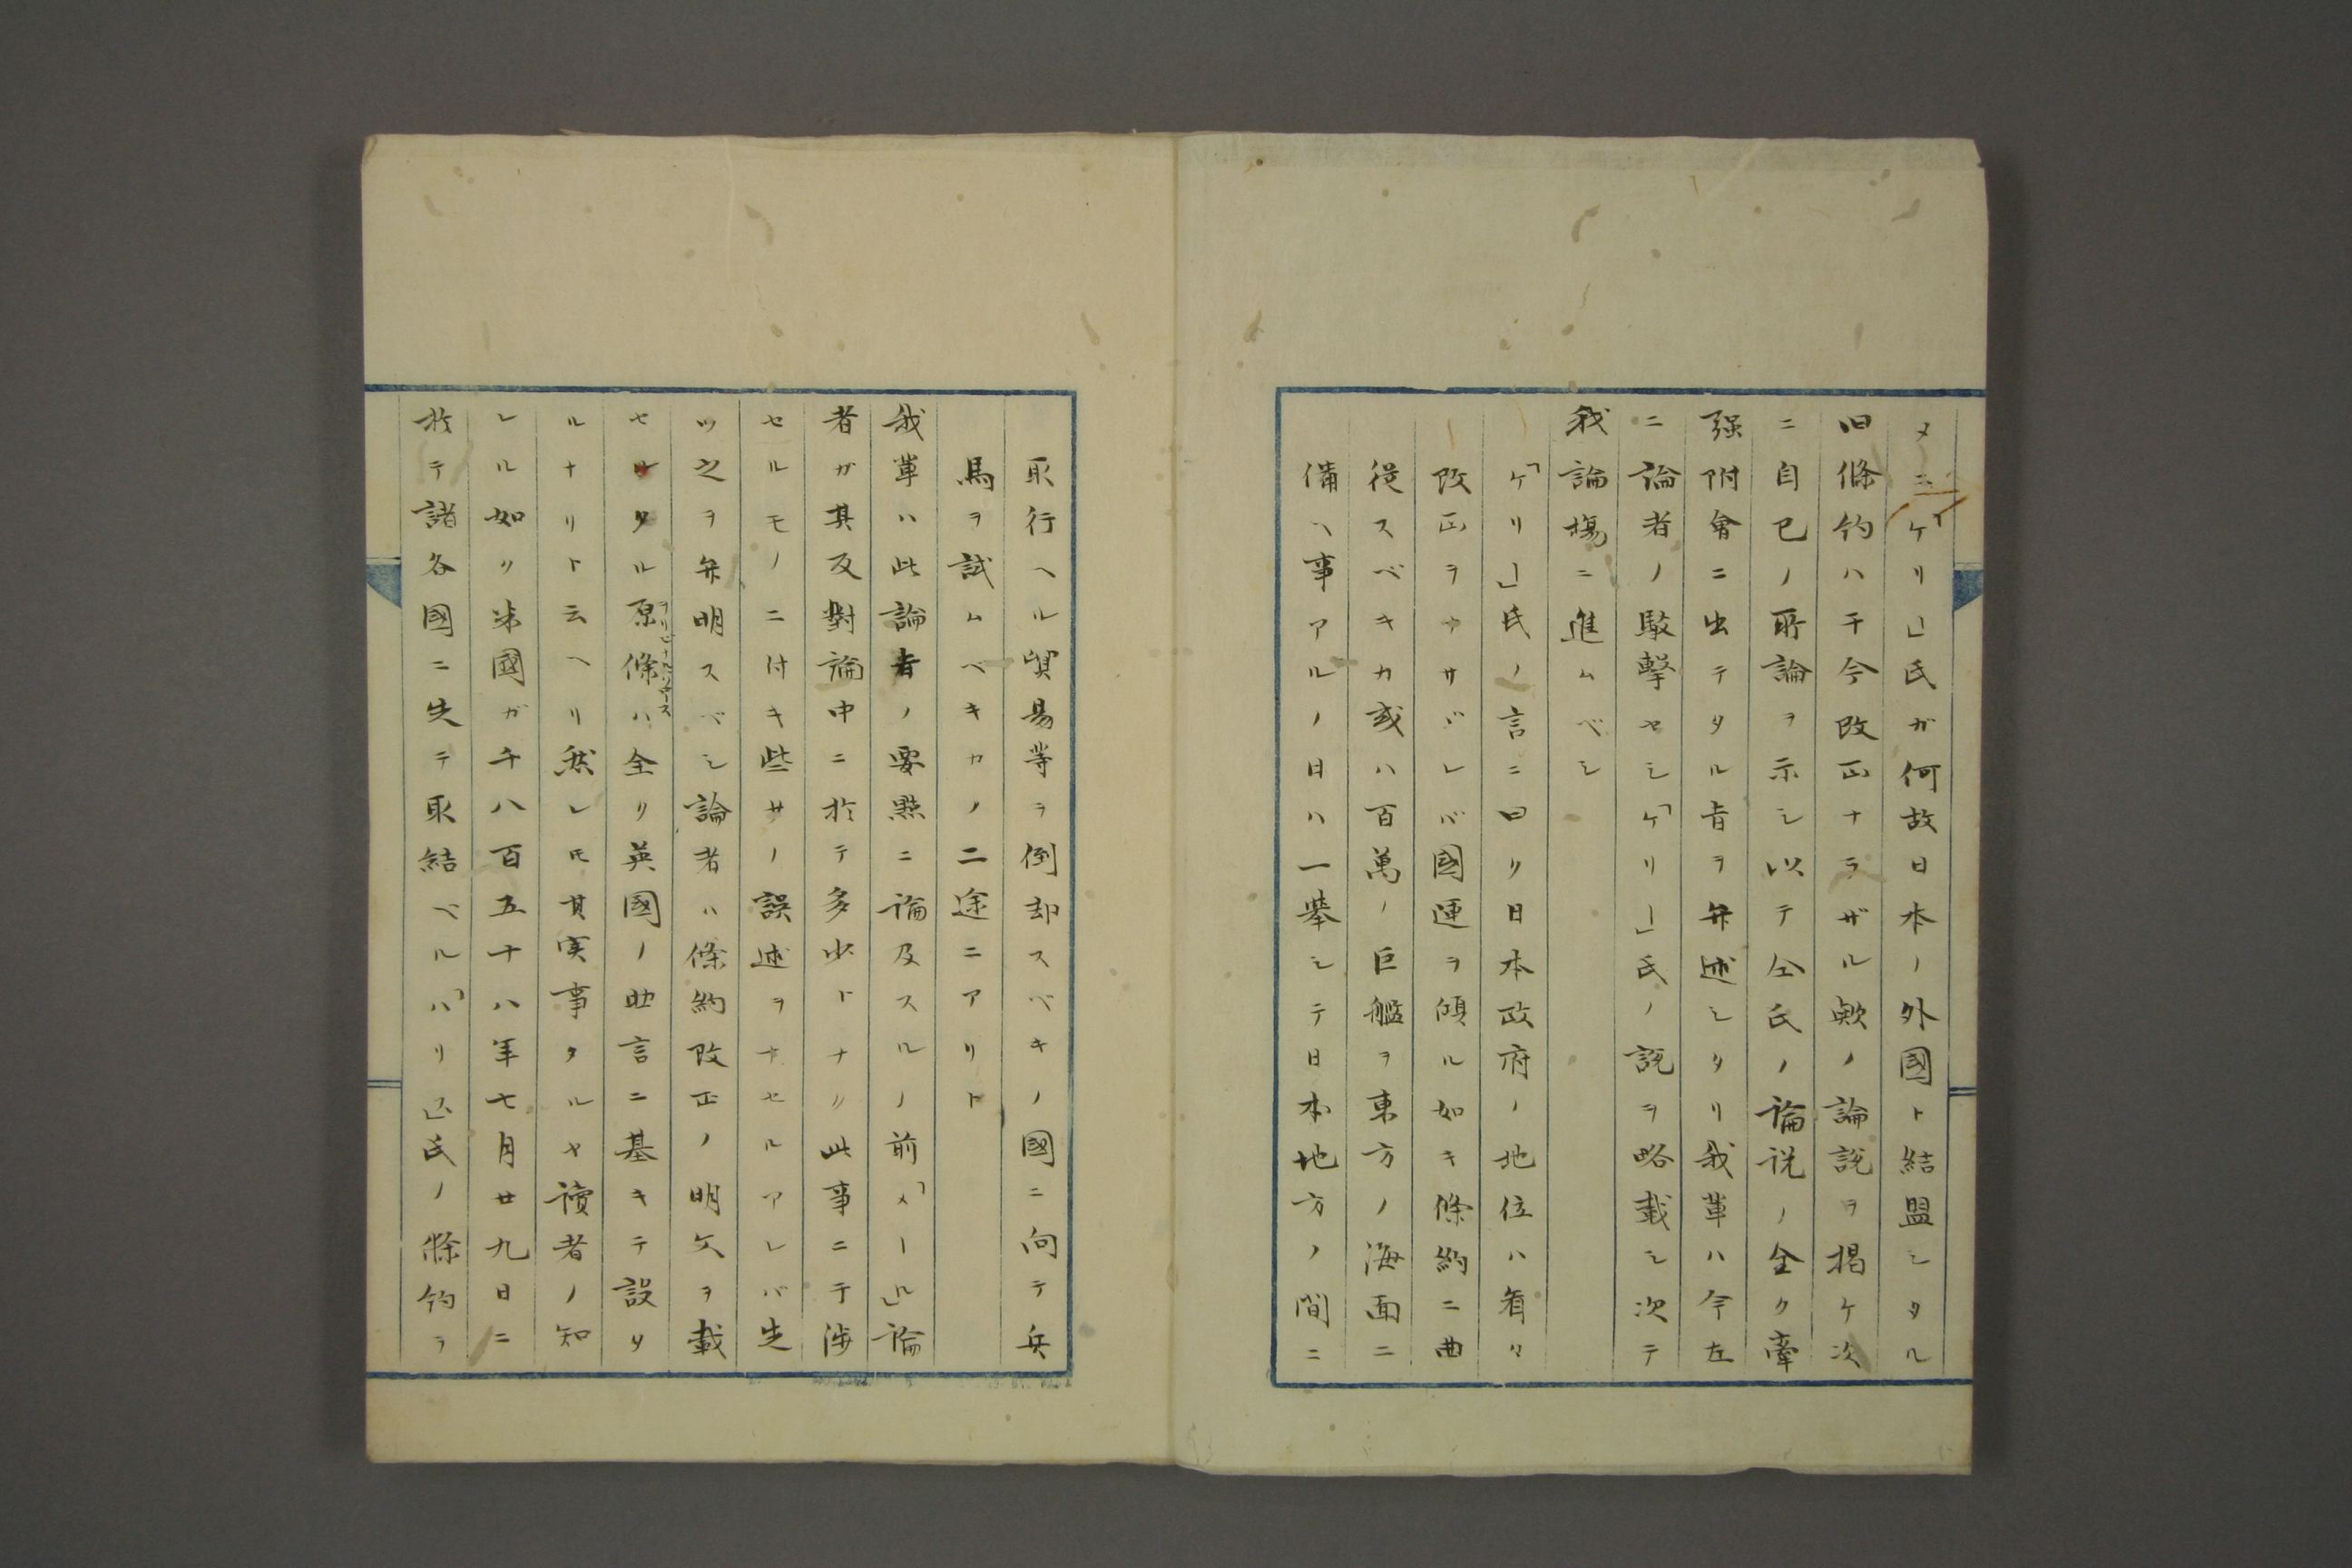 メニ「ケリー」氏ガ何故日本ノ外國ト結盟シタル
旧條約ハ于今改正ナラザル歟ノ論説ヲ掲ケ次
ニ自己ノ所論ヲ示シ以テ仝氏ノ論説ノ全ク牽
強附會ニ出テタル旨ヲ弁述シタリ我輩ハ今左
ニ論者ノ駁撃セシ「ケリー」氏ノ説ヲ略載シ次テ
我論場ニ進ムベシ
「ケリー」氏ノ言ニ曰ク日本政府ノ地位ハ看々
改正ヲナサヾレバ國運ヲ傾ル如キ條約ニ曲
從スベキカ或ハ百萬ノ巨艦ヲ東方ノ海面ニ
備ヘ事アルノ日ハ一挙シテ日本地方ノ間ニ
取行ヘル貿易等ヲ倒却スベキノ國ニ向テ兵
馬ヲ試ムベキカノ二途ニアリト
我輩ハ此論者ノ要點ニ論及スルノ前「メール」論
者ガ其反對論中ニ於テ多少トナク此事ニ干渉
セルモノニ付キ些サノ誤述ヲナセルアレバ先
ツ之ヲ弁明スベシ論者ハ條約改正ノ明文ヲ載
セルタル原條ハ全ク英國ノ助言ニ基キテ設ク
ルナリト云ヘリ然レ𪜈其実事タルヤ讀者ノ知
レル如ク米國ガ千八百五十八年七月廿九日ニ
於テ諸各國ニ先テ取結ベル「ハリス」氏ノ條約ヲ